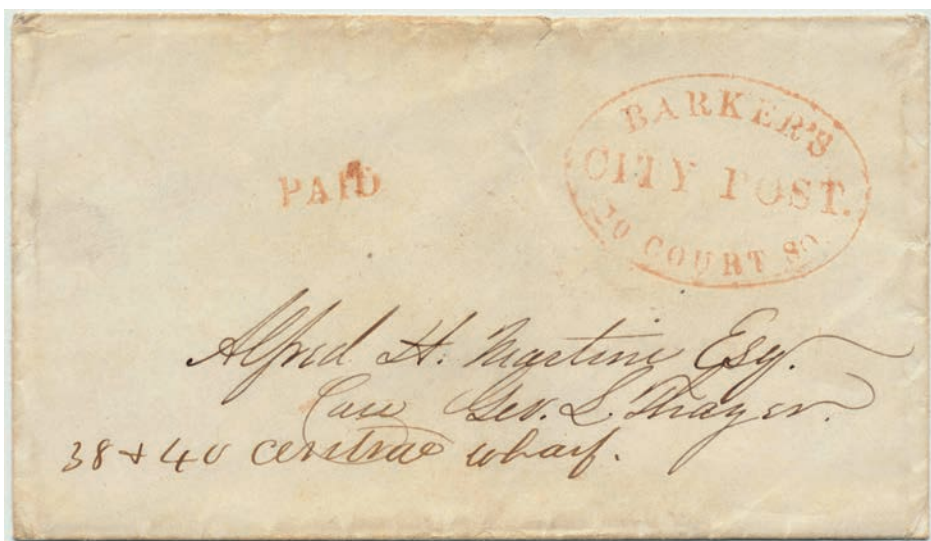 PAID
BARKER'S
CITY POST.
10 COURT SQ.
Alfred H. Martini Esq.
Care Geo. L. Thayer.
38 & 40 Central wharf.